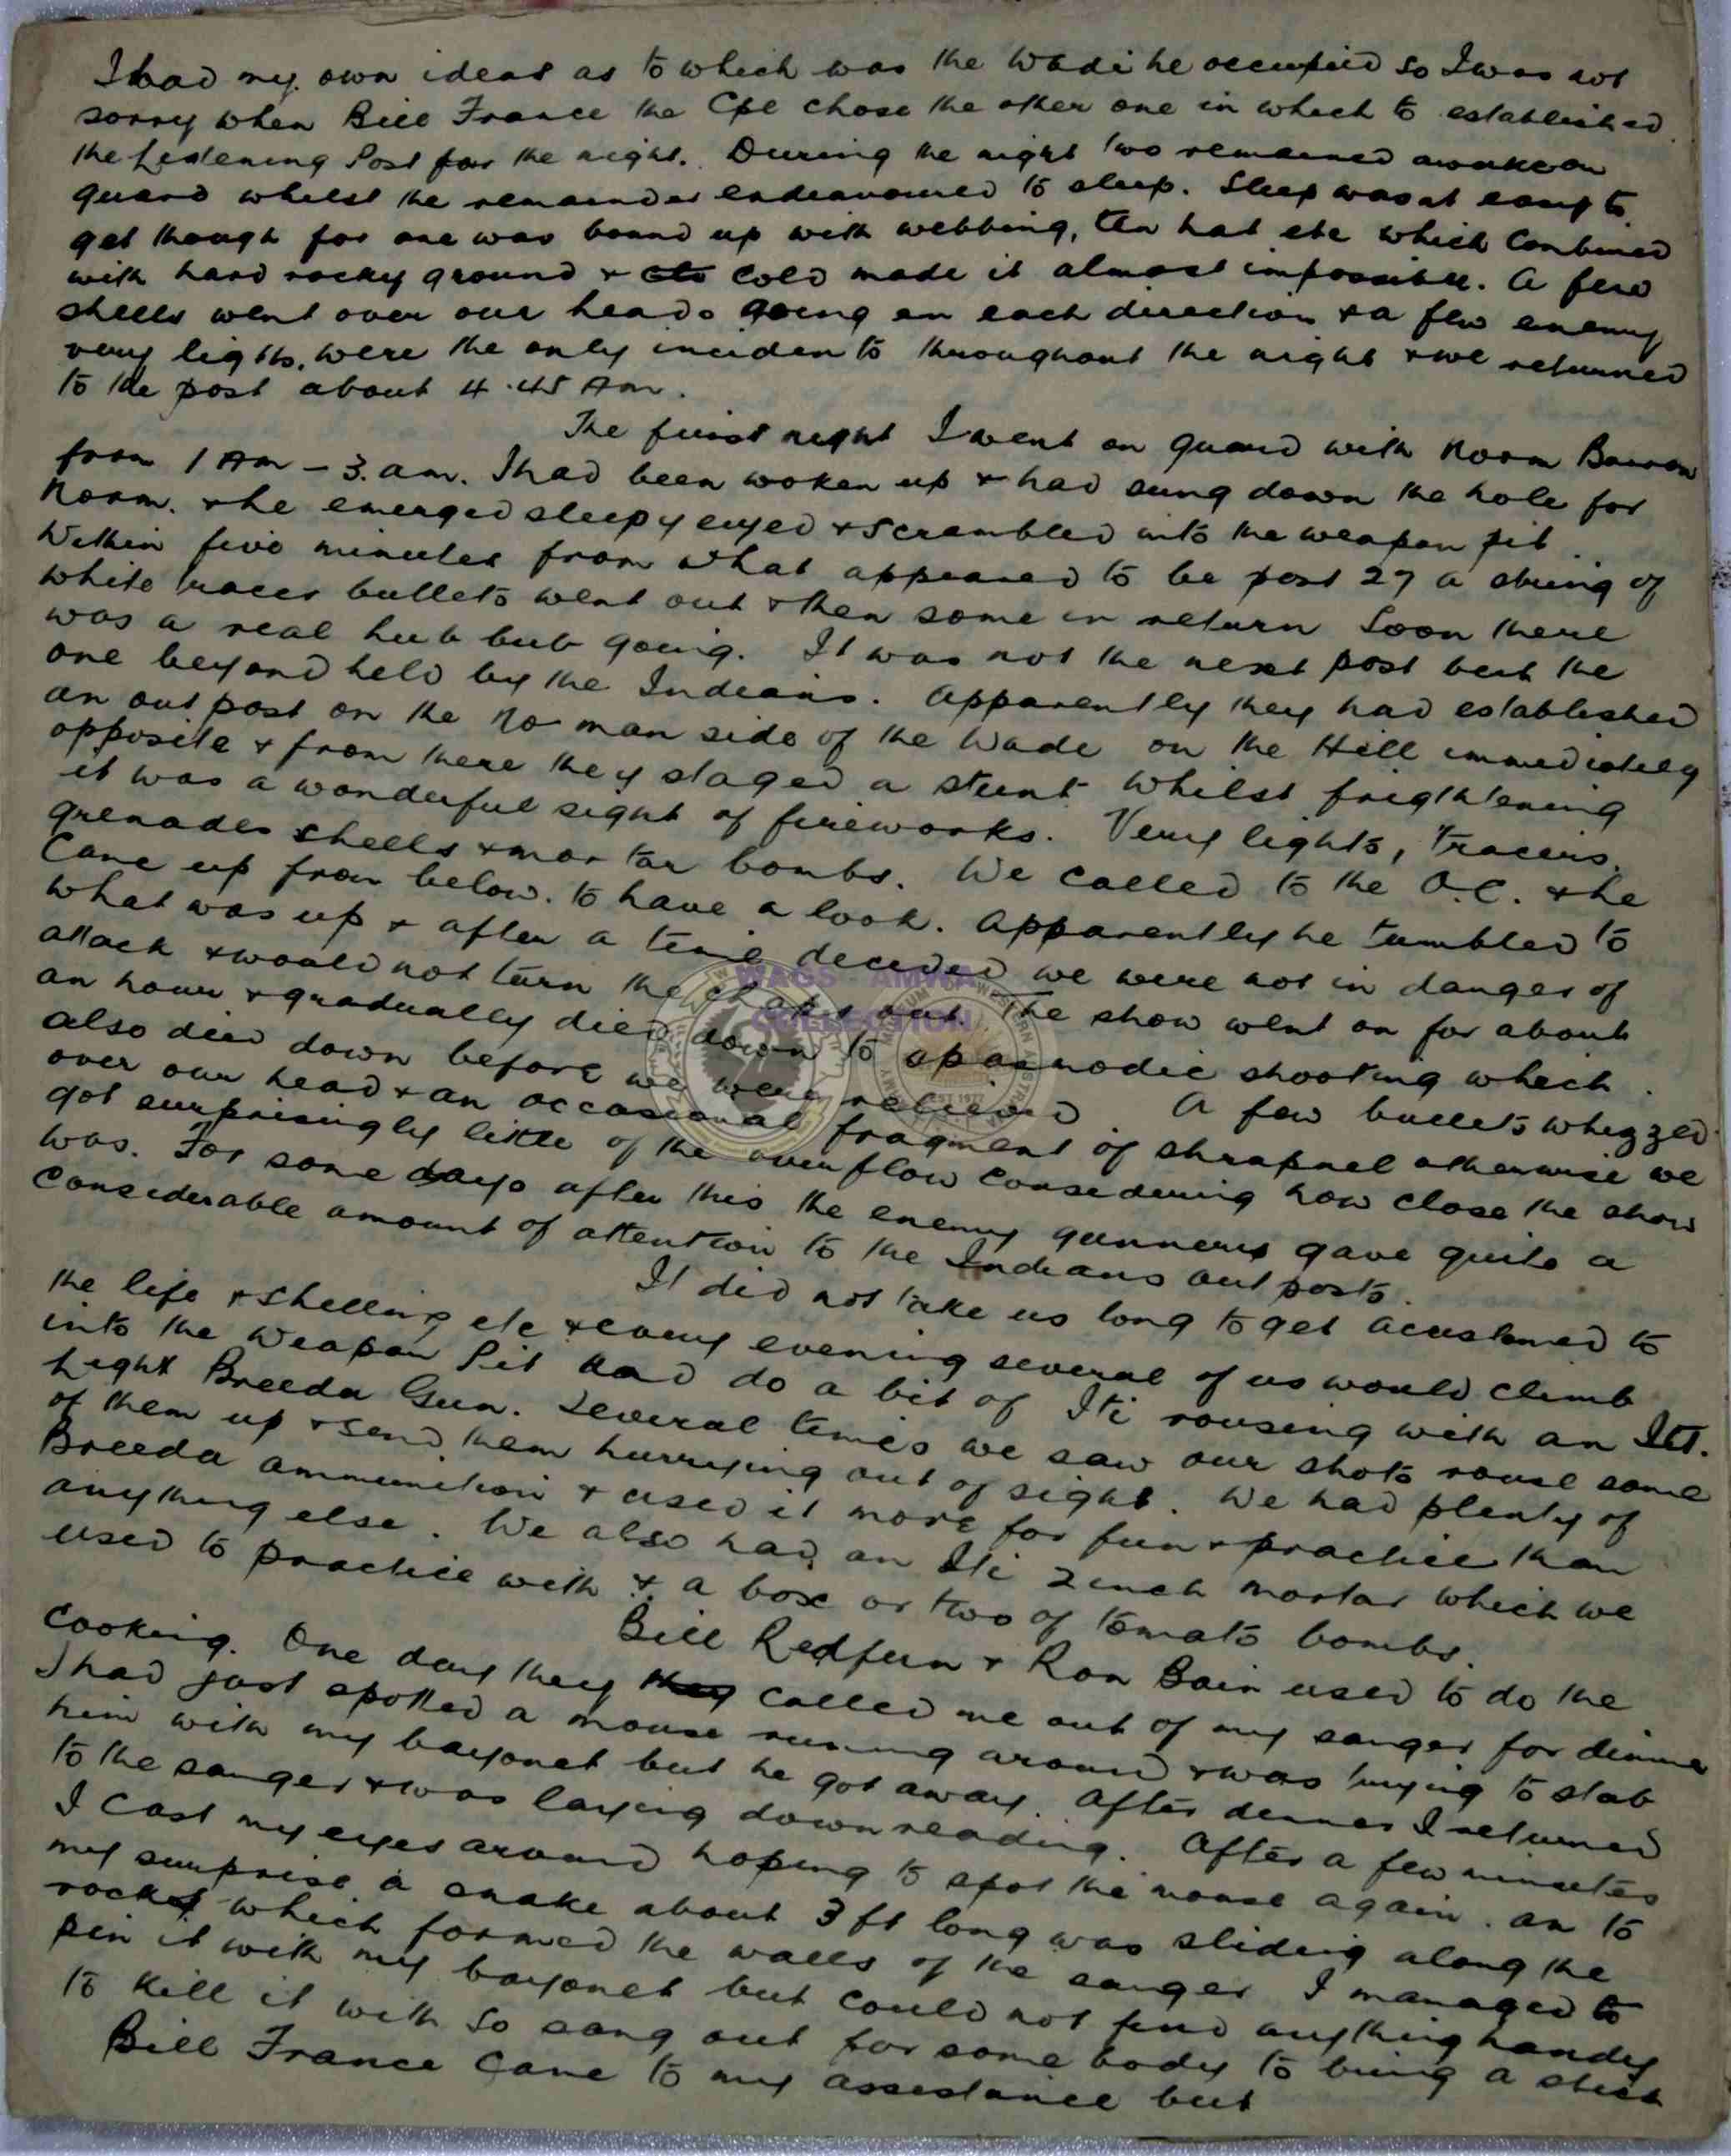 I had my own ideas as to which was the Wadi he occupied so I was not
sorry when Bill France the Cpl chose the other one in which to established
the Listening Post for the night. During the night two remained awake on
guard whilst the remainder endeavoured to sleep. Sleep wasnt easy to
get though for one was bound up with webbing, tin hat etc which combined
with hard rocky ground & cold made it almost impossible. A few
shells went over our heads going in each direction & a few enemy
very lights, were the only incidents throughout the night & we returned
to the post about 4.45 Am.
The first night I went on guard with Norm Barron
from 1 Am - 3. am. I had been woken up & had sung down the hole for
Norm. & he emerged sleepy eyed & scrambled into the weapon pit.
Within five minutes from what appeared to be post 27 a string of
white tracer bullets went out & then some in return Soon there
was a real hub bub going. It was not the next post but the
one beyond held by the Indians. Apparently they had established
an out post on the No man side of the Wade on the Hill immediately
opposite & from there they staged a stunt whilst frightening
it was a wonderful sight of fireworks. Very lights, Tracers,
grenades shells & mortar bombs. We called to the O.C. & he
came up from below. to have a look. Apparently he tumbled to
what was up & after a time decided we were not in danger of
attack & would not turn the chaps out. The show went on for about
an hour & gradually died down to spasmodic shooting which
also died down before we were relieved A few bullets whizzed
over our head & an occasional fragment of shrapnel otherwise we
got surprisingly little of the overflow considering how close the show
was. For some days after this the enemy gunners gave quite a
considerable amount of attention to the Indians out posts.
It did not take us long to get acustomed to
the life & shelling etc & every evening several of us would climb
into the Weapon Pit and do a bit of Iti rousing with an Itt.
Light Breeda Gun. Several times we saw our shots rouse some
of them up & send them hurrying out of sight. We had plenty of
Breeda ammunition & used it more for fun & practice than
anything else. We also had an Iti 2 inch mortar which we
used to practice with & a box or two of tomato bombs.
Bill Redfern & Ron Bain used to do the
cooking. One day they they called me out of my sanger for dinner
I had just spotted a mouse running around & was trying to stab
him with my bayonet but he got away. After dinner I returned
to the sanger & was laying down reading. After a few minutes
I cast my eyes around hoping to spot the mouse again. an to
my surprise a snake about 3 ft long was sliding along the
rocks which formed the walls of the sanger I managed to
pin it with my bayonet but could not find anything handy
to kill it with so sang out for some body to bring a stick
Bill France came to my assistance but
WAGS - AMWA
COLLECTION